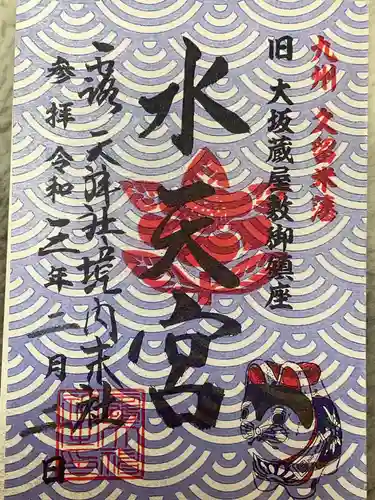 九州 久留米藩
旧 大坂蔵屋敷御鎮座
水天宮
露天神社境内末社
参拝 令和三年二月二日